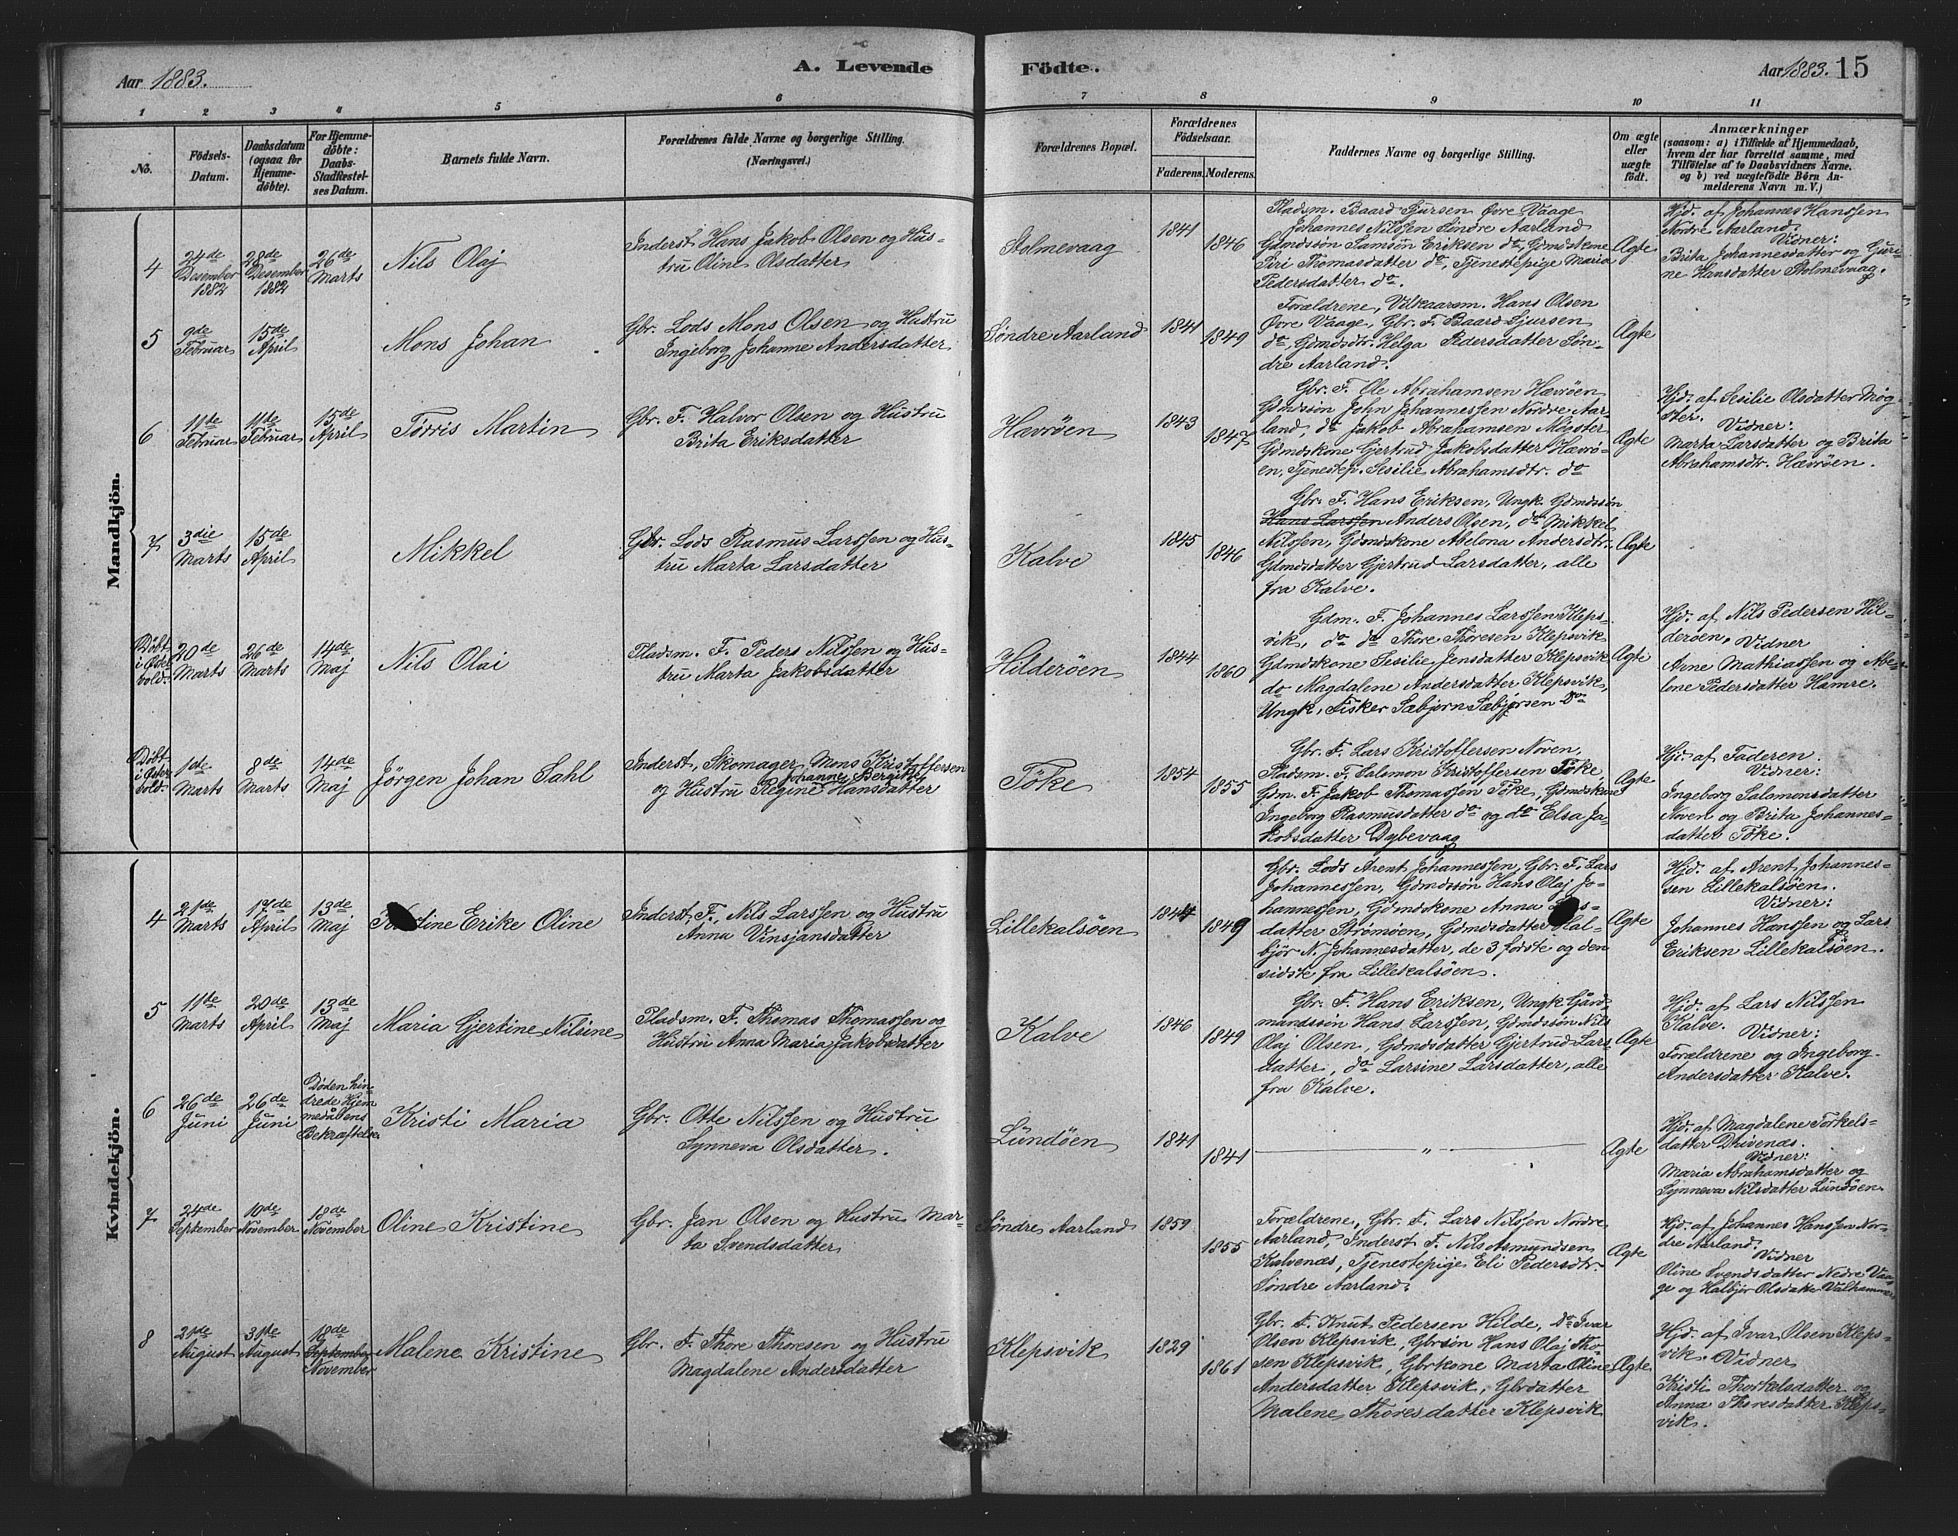 Aar 1883.
A. Levende Födte.
Aar 1883. 15
1 2 3 4 5 6 7 8 9 10 11
No.
Födsels-
Datum.
Daabsdatum
(ogsaa for
Hjemme-
döbte).
For Hjemme-
döbte:
Daabs-
Stadfæstel-
ses Datum.
Barnets fulde Navn.
Forældrenes fulde Navne og borgerlige Stilling.
(Næringsvei.)
Forældrenes Bopæl.
Forældrenes
Födselsaar.
Faderens. Moderens.
Faddernes Navne og borgerlige Stilling.
Om ægte
eller
uægte
födt.
Anmærkninger
(saasom: a) i Tilfælde af Hjemmedaab,
hvem der har forrettet samme, med
Tilföielse af to Daabsvidners Navne.
og b) ved uægtefödte Börn An-
melderens Navn m. V.)
Mandkjön.
4
24de
Desember
1882
28de
Desember
1882
26de
Marts
Nils Olaj
Inderst Hans Jakob Olsen og Hus-
tru Oline Olsdatter
Stolmevaag
1841
1846
Pladsm. Baard Sjursen Övre Vaage
Johannes Nilssen Söndre Aarland
Gdmdssön Samson Eriksen do, Gdmdskone
Siri Thomasdatter do, Tjenestepige Maria
Pedersdatter do.
Ægte
Hjd. af Johannes Hanssen
Nordre Aarland.
Vidner:
Brita Johannesdatter og Guri-
ne Hansdatter Stolmevaag.
5
9de
Februar
15de
April
Mons Johan
Gbr. Lods Mons Olsen og Hustru
Ingeborg Johanne Andersdatter
Söndre Aarland
1841
1849
Forældrene, Vilkaarsm. Hans Olsen
Övre Vaage, Gbr. F. Baard Sjursen
do, Gdmdsdtr. Helga Pedersdatter Sön-
dre Aarland.
Ægte
6
11de
Februar
11de
Februar
15de
April
Törris Martin
Gbr. F. Halvor Olsen og Hustru
Brita Eriksdatter
Hævröen
1843
1847
Gbr. F. Ole Abrahamsen Hævröen
Gdmdssön John Johannessen Nordre Aar-
land, do Jakob Abrahamsen Mögster
Gdmdskone Gjertrud Jakobsdatter Hævrö-
en, Tjenestep. Sesilie Abrahamsdtr. do
Ægte
Hjd. af Sesilie Olsdatter Mög-
ster.
Vidner:
Marta Larsdatter og Brita
Abrahamsdtr. Hævröen.
7
3die
Marts
15de
April
Mikkel
Gbr. Lods Rasmus Larssen og Hus-
tru Marta Larsdatter
Kalve
1845
1846
Gbr. F. Hans Eriksen, Ungk. Gdmdssön
Hans Larssen Anders Olsen, do Mikkel
Nilssen, Gdmdskone Abelona Andersdtr.
Gdmdsdatter Gjertrud Larsdatter, alle
fra Kalve.
Ægte
Döbt
i Øst
vold.
20de
Marts
26de
Marts
14de
Maj
Nils Olai
Pladsm. F. Peders Nilssen og Hus-
tru Marta Jakobsdatter
Hilderöen
1844
1860
Gdm. F. Johannes Larssen Kleps-
vik, do do Thore Thoresen Klepsvik
Gdmdskone Sesilie Jensdatter Klepsvik
do Magdalene Andersdatter Klepsvik,
Ungk. Fisker Sæbjørn Sæbjørsen Do
Ægte
Hjd. af Nils Pedersen Hil-
deröen.
Vidner
Arne Mathiassen og Abe-
lone Pedersdatter Hamre.
Döbt
i Øster
vold.
1ste
Marts
8de
Marts
14de
Maj
Jörgen Johan Sahl
Inderst, Skomager Mons Kristoffersen
og Hustru Johanne Bergitte Regine Hansdatter
Töke
1854
1855
Gbr. F. Lars Kristoffersen Noven,
Pladsm. F. Salomon Kristoffersen Töke,
Gdm. F. Jakob Thomassen Töke, Gdmdskone
Ingeborg Rasmusdatter do og do Elsa Ja-
kobsdatter Dybevaag
Ægte
Hjd. af Faderen.
Vidner:
Ingeborg Salomonsdatter
Noven og Brita Johannes-
datter Töke.
Kvindekjön.
4
21de
Marts
17de
April
13de
Maj
Erike Oline
Inderst, F. Nils Larssen og Hustru
Anna Vinsjansdatter
Lillekalsöen
1844
1849
Gbr. Lods Arent Johannessen, Gbr. F. Lars
Johannessen, Gdmdssön Hans Olaj Jo-
hannessen, Gdmdskone Anna
datter Strömöen, Gdmdsdatter Hal-
björ N. Johannesdatter, de 3 förste og den
sidste fra Lillekalsöen.
Ægte
Hjd. af Arent Johannes-
sen Lillekalsöen.
Vidner:
Johannes Hanssen og Lars
Eriksen Lillekalsöen.
5
11de
Marts
20de
April
13de
Maj
Maria Gjertine Nilsine
Pladsm. F. Thomas Thomassen og
Hustru Anna Maria Jakobsdatter
Kalve
1846
1849
Gbr. F. Hans Eriksen, Ungk. Gård-
mandssön Hans Larssen, Gdmdssön Nils
Olaj Olsen, Gdmdsdatter Gjertrud Lars-
datter, do Larsine Larsdatter, alle
fra Kalve.
Ægte
Hjd. af Lars Nilssen
Kalve.
Vidner:
Forældrene og Ingeborg
Andersdatter Kalve.
6
26de
Juni
26de
Juni
Döden hin-
drede Hjem-
medåbens
Bekræftelse
Kristi Maria
Gbr. Otte Nilssen og Hustru
Synneva Olsdatter.
Lundöen
1841
1841
"
Ægte
Hjd. af Magdalene Torkels-
datter Drivenæs.
Vidner:
Maria Abrahamsdatter og
Synneva Nilsdatter Lundöen.
7
24de
September
10de
November
18de
November
Oline Kristine
Gbr. Jan Olsen og Hustru Mar-
ta Svendsdatter
Söndre Aarland
1859
1855
Forældrene, Gbr. F. Lars Nilssen Nordre
Aarland, Inderst F. Nils Asmundsen
Kalvenæs, Tjenestepige Eli Pedersdtr.
Söndre Aarland.
Ægte
Hjd. af Johannes Hanssen Nor-
dre Aarland.
Vidner
Oline Svendsdatter Nedre Vaa-
ge og Halbjör Olsdatter Valhammer
8
21de
August
31te
August
18de
September
November
Malene Kristine
Gbr. F. Thore Thoresen og Hustru
Magdalene Andersdatter
Klepsvik
1829
1861
Gbr. F. Knut Pedersen Hilde, Do Ivar
Olsen Klepsvik, Gbrsön Hans Olaj Tho-
sen Klepsvik, Gbrkone Marta Oline
Andersdatter Klepsvik, Gbrdatter
Malene Thoresdatter Klepsvik
Ægte
Hjd. af Ivar Olsen Kleps-
vik. Vidner
Kristi Thorkelsdatter og
Anna Thoresdatter Kleps-
vik.